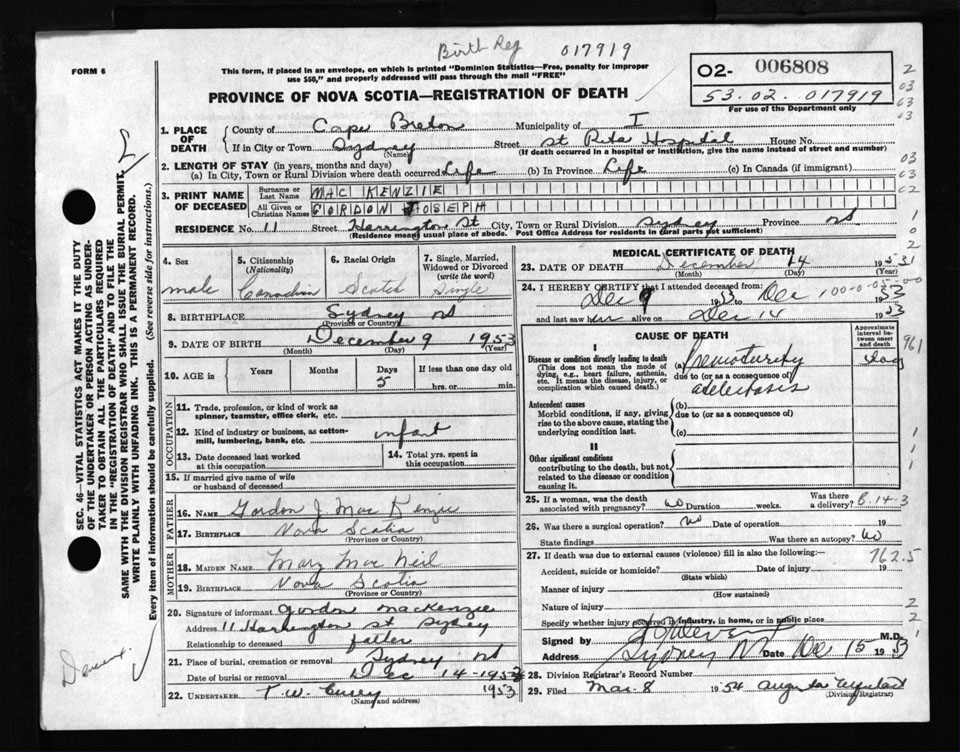 Birth Reg 017919
FORM 6
This form, if placed in an envelope, on which is printed "Dominion Statistics—Free, penalty for improper
use $50," and properly addressed will pass through the mail "FREE"
PROVINCE OF NOVA SCOTIA—REGISTRATION OF DEATH
02- 006808
53.02.017919
For use of the Department only
2
03
63
03
03
03
02
1
0
2
1. PLACE OF DEATH
County of Cape Breton Municipality of I
If in City or Town Sydney Street St Rita Hospital House No.
(Name) (If death occurred in a hospital or institution, give the name instead of street and number)
2. LENGTH OF STAY (in years, months and days)
(a) In City, Town or Rural Division where death occurred Life (b) In Province Life (c) In Canada (if immigrant)
3. PRINT NAME OF DECEASED
Surname or Last Name MAC KENZIE
All Given or Christian Names GORDON JOSEPH
RESIDENCE No. 11 Street Harrington St City, Town or Rural Division Sydney Province NS
(Residence means usual place of abode. Post Office Address for residents in rural parts not sufficient)
SEC. 46—VITAL STATISTICS ACT MAKES IT THE DUTY
OF THE UNDERTAKER OR PERSON ACTING AS UNDER-
TAKER TO OBTAIN ALL THE PARTICULARS REQUIRED
IN THE "REGISTRATION OF DEATH" AND TO FILE THE
SAME WITH THE DIVISION REGISTRAR WHO SHALL ISSUE THE BURIAL PERMIT.
WRITE PLAINLY WITH UNFADING INK. THIS IS A PERMANENT RECORD.
Every item of information should be carefully supplied. (See reverse side for instructions.)
4. Sex male
5. Citizenship (Nationality) Canadian
6. Racial Origin Scotch
7. Single, Married, Widowed or Divorced (write the word) Single
8. BIRTHPLACE Sydney NS
(Province or Country)
9. DATE OF BIRTH December 9 1953
(Month) (Day) (Year)
10. AGE in Years Months Days 5 If less than one day old
hrs. or min.
OCCUPATION
11. Trade, profession, or kind of work as
spinner, teamster, office clerk, etc.
12. Kind of industry or business, as cotton-
mill, lumbering, bank, etc. infant
13. Date deceased last worked
at this occupation
14. Total yrs. spent in
this occupation
15. If married give name of wife
or husband of deceased
FATHER
16. NAME Gordon J Mac Kenzie
17. BIRTHPLACE Nova Scotia
(Province or Country)
MOTHER
18. MAIDEN NAME Mary Mac Neil
19. BIRTHPLACE Nova Scotia
(Province or Country)
20. Signature of informant Gordon MacKenzie
Address 11 Harrington St Sydney
Relationship to deceased father
21. Place of burial, cremation or removal Sydney NS
Date of burial or removal Dec 14-1953
22. UNDERTAKER T. W. Curry 1953
(Name and address)
MEDICAL CERTIFICATE OF DEATH
23. DATE OF DEATH December 14 1953
(Month) (Day) (Year)
24. I HEREBY CERTIFY that I attended deceased from:
Dec 9 1953 Dec 1953
and last saw him alive on Dec 14 1953
CAUSE OF DEATH
Approximate interval between onset and death
961
I
Disease or condition directly leading to death
(This does not mean the mode of
dying, e.g., heart failure, asthenia,
etc. It means the disease, injury, or
complication which caused death.)
(a) Prematurity
due to (or as a consequence of)
atelectasis
Antecedent causes
Morbid conditions, if any, giving
rise to the above cause, stating the
underlying condition last.
(b)
due to (or as a consequence of)
(c)
II
Other significant conditions
contributing to the death, but not
related to the disease or condition
causing it.
1
1
1
25. If a woman, was the death
associated with pregnancy? No Duration weeks.
Was there
a delivery? 8-14-3
26. Was there a surgical operation? No Date of operation 19
State findings Was there an autopsy? No
27. If death was due to external causes (violence) fill in also the following:— 762.5
Accident, suicide or homicide? Date of injury 19
(State which)
Manner of injury
(How sustained)
Nature of injury
Specify whether injury occurred in industry, in home, or in public place
2
2
1
Signed by M.D.
Address Sydney NS Date Dec 15 1953
28. Division Registrar's Record Number
29. Filed Mar. 8 1954 Augusta
(Division Registrar)